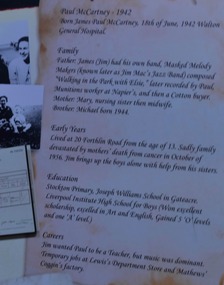 Paul McCartney - 1942
Born James Paul McCartney, 18th of June, 1942 Walton
General Hospital.
Family
Father: James (Jim) had his own band, Masked Melody
Makers (known later as Jim Mac's Jazz Band) composed
"Walking in the Park with Elsie," later recorded by Paul.
Munitions worker at Napier's, and then a Cotton buyer.
Mother: Mary, nursing sister then midwife.
Brother: Michael born 1944.
Early Years
Lived at 20 Forthlin Road from the age of 13. Sadly family
devastated by mothers' death from cancer in October of
1956. Jim brings up the boys alone with help from his sisters.
Education
Stockton Primary, Joseph Williams School in Gateacre.
Liverpool Institute High School for Boys (Won excellent
scholarship, excelled in Art and English. Gained 5 'O' levels
and one 'A' level.)
Careers
Jim wanted Paul to be a Teacher, but music was dominant.
Temporary jobs at Lewis's Department Store and Mathews'
Coggin's factory.